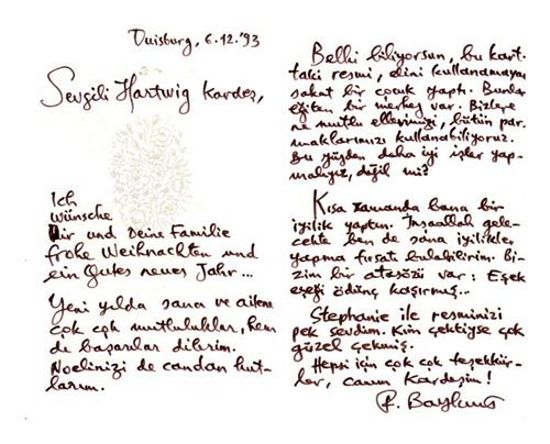 Duisburg, 6.12.'93
Sevgili Hartwig kardeş,
Ich
wünsche
Dir und Deine Familie
frohe Weihnachten und
ein Gutes neues Jahr...
Yeni yılda sana ve ailene
çok çok mutluluklar, hem
de başarılar dilerim.
Noelinizi de candan kut-
larım.
Belki biliyorsun, bu kart-
taki resmi, elini kullanamayan
sakat bir çocuk yaptı. Bunları
eğiten bir merkez var. Bizlere
ne mutlu ellerimizi, bütün par-
maklarımızı kullanabiliyoruz.
Bu yüzden daha iyi işler yap-
malıyız, değil mi?
Kısa zamanda bana bir
iyilik yaptın. İnşaallah gele-
cekte ben de sana iyilikler
yapma fırsatı bulabilirim. Bi-
zim bir atasözü var: Eşek
eşeği ödünç kaşırmış...
Stephanie ile resminizi
pek sevdim. Kim çektiyse çok
güzel çekmiş.
Hepsi için çok çok teşekkür-
ler, canım Kardeşim!